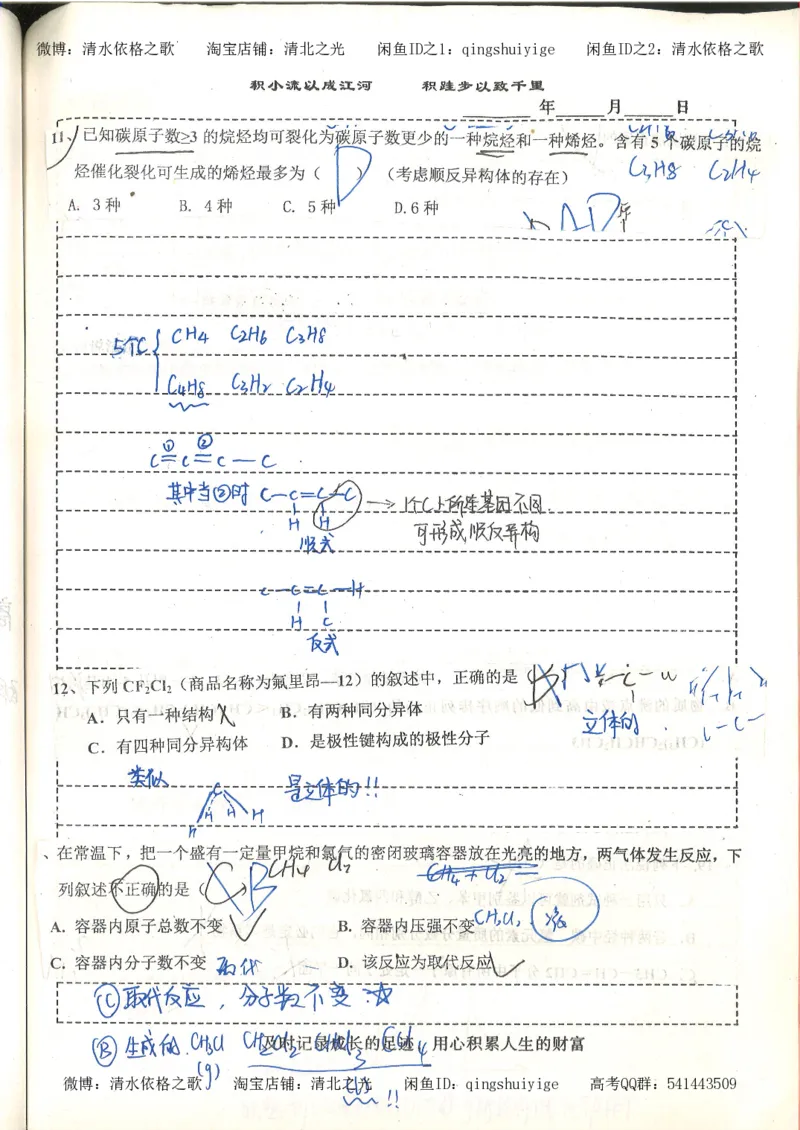 微博：清水依格之歌 淘宝店铺：清北之光 闲鱼ID之1：qingshuiyige 闲鱼ID之2：清水依格之歌
积小流以成江河 积跬步以致千里
年 月 日
11、已知碳原子数≥3 的烷烃均可裂化为碳原子数更少的一种烷烃和一种烯烃。含有 5 个碳原子的烷
烃催化裂化可生成的烯烃最多为（ D ）（考虑顺反异构体的存在）
C3H8 C2H4
A. 3种 B. 4种 C. 5种 D.6种
5个C CH4 C2H6 C3H8
C4H8 C3H2 C2H4
① ②
C=C=C—C
其中当②时 C—C=C—C → 1个C上所连基团不同
H H 可形成顺反异构
顺式
C—C=C—H
H C
反式
12、下列 CF2Cl2（商品名称为氟里昂—12）的叙述中，正确的是
A．只有一种结构 B．有两种同分异体
立体的
C．有四种同分异构体 D．是极性键构成的极性分子
类似 是立体的!!
C
H H H H
、在常温下，把一个盛有一定量甲烷和氯气的密闭玻璃容器放在光亮的地方，两气体发生反应，下
CH4 CH4+Cl2=
列叙述不正确的是（ C B
A．容器内原子总数不变 B．容器内压强不变 CH2Cl2 液
C．容器内分子数不变 取代 D．该反应为取代反应
Ⓒ取代反应，分子数不变☆
Ⓑ生成的 CH3Cl CH2Cl2 CHCl3 CCl4
及时记录成长的足迹 用心积累人生的财富
(g)
微博：清水依格之歌 淘宝店铺：清北之光 闲鱼ID：qingshuiyige 高考QQ群：541443509
!!